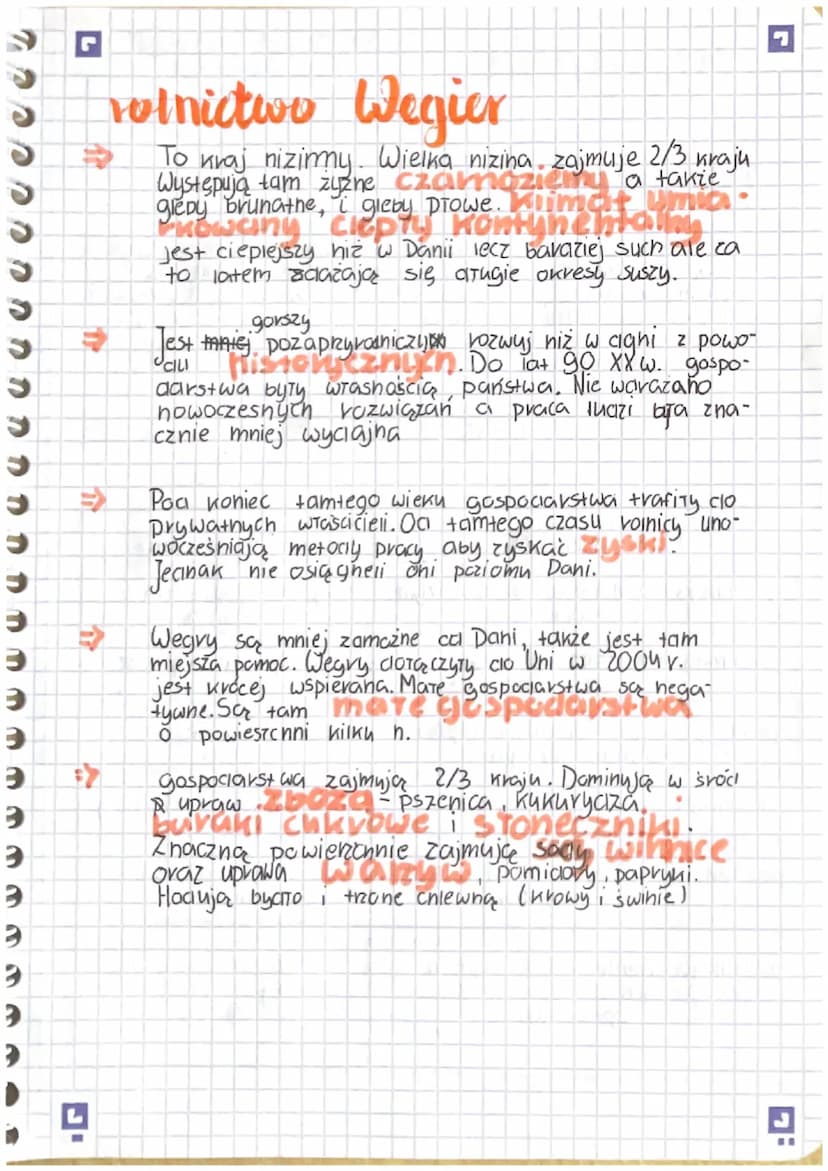 rolnictwo Węgier
⇒ To kraj nizinny. Wielka nizina zajmuje 2/3 kraju
Występują tam żyzne czarnoziemy a także
gleby brunatne, i gleby płowe. Klimat umia-
rkowany ciepły kontynentalny
jest cieplejszy niż w Danii lecz bardziej such ale za
to latem zdażają się długie okresy suszy.
gorszy
⇒ Jest mniej pozaprzyrodniczy rozwuj niż w z powo-
du historycznych. Do lat 90 XX w. gospo-
darstwa były własnością państwa. Nie wdrażano
nowoczesnych rozwiązań a praca ludzi była zna-
cznie mniej wydajna
⇒ Pod koniec tamtego wieku gospodarstwa trafiły do
prywatnych właścicieli. Od tamtego czasu rolnicy uno-
wocześniają metody pracy aby zyskać zyski.
Jednak nie osiągneli oni poziomu Dani.
⇒ Węgry są mniej zamożne od Dani, także jest tam
miejsza pomoc. Węgry dołączyły do Uni w 2004 r.
jest krócej wspierana. Małe gospodarstwa są nega-
tywne. Są tam małe gospodarstwa
o powieszchni kilku h.
⇒ gospodarstwa zajmują 2/3 kraju. Dominują w śród
upraw zboża - pszenica, kukurydza.
buraki cukrowe i słoneczniki.
Znaczną powierzchnie zajmują sady, winnice
oraz uprawa warzyw, pomidory, papryki.
Hodują bydło i trzone chlewną (krowy i świnie)